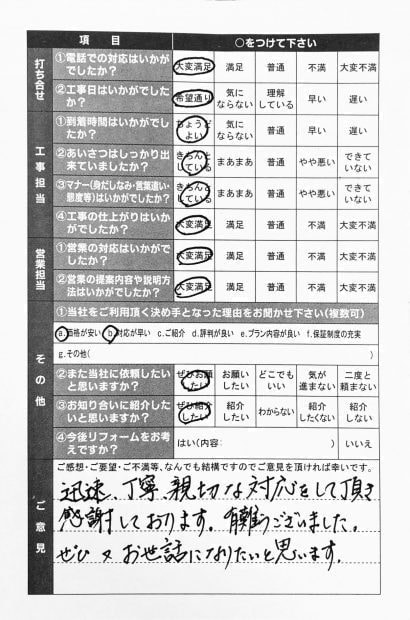 項目 ○をつけて下さい
打ち合せ
①電話での対応はいかがでしたか? 大変満足 満足 普通 不満 大変不満
②工事日はいかがでしたか? 希望通り 気にならない 理解している 早い 遅い
工事担当
①到着時間はいかがでしたか? ちょうどよい 気にならない 普通 早い 遅い
②あいさつはしっかり出来ていましたか? きちんとしている まあまあ 普通 やや悪い できていない
③マナー(身だしなみ・言葉遣い・態度等)はいかがでしたか? きちんとしている まあまあ 普通 やや悪い できていない
④工事の仕上がりはいかがでしたか? 大変満足 満足 普通 不満 大変不満
営業担当
①営業の対応はいかがでしたか? 大変満足 満足 普通 不満 大変不満
②営業の提案内容や説明方法はいかがでしたか? 大変満足 満足 普通 不満 大変不満
その他
①当社をご利用頂く決め手となった理由をお聞かせ下さい(複数可)
a.価格が安い b.対応が早い c.ご紹介 d.評判が良い e.プラン内容が良い f.保証制度の充実
g.その他( )
②また当社に依頼したいと思いますか? ぜひお願いしたい お願いしたい どこでもいい 気が進まない 二度と頼まない
③お知り合いに紹介したいと思いますか? ぜひ紹介したい 紹介したい わからない 紹介したくない 紹介しない
④今後リフォームをお考えですか? はい(内容: ) いいえ
ご意見
ご感想・ご要望・ご不満等、なんでも結構ですのでご意見を頂ければ幸いです。
迅速、丁寧、親切な対応をして頂き
感謝しております。有難うございました。
ぜひ又お世話になりたいと思います。